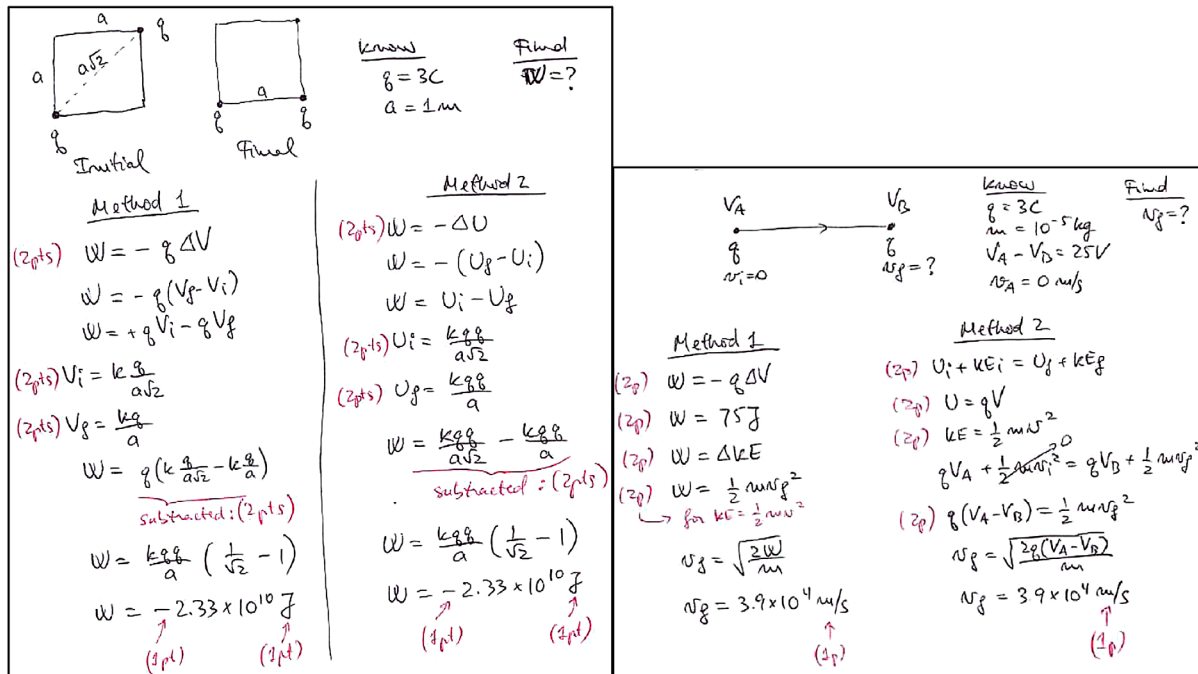 a q
a a√2 a
q q q
Initial Final
Know
q = 3C
a = 1m
Find
W = ?
Method 1
(2pts) W = - q ΔV
W = - q(Vf - Vi)
W = + qVi - qVf
(2pts) Vi = k q/(a√2)
(2pts) Vf = kq/a
W = q(k q/(a√2) - k q/a)
subtracted: (2pts)
W = kqq/a (1/√2 - 1)
W = -2.33 × 10^10 J
(1pt) (1pt)
Method 2
(2pts) W = - ΔU
W = - (Uf - Ui)
W = Ui - Uf
(2pts) Ui = kqq/(a√2)
(2pts) Uf = kqq/a
W = kqq/(a√2) - kqq/a
subtracted: (2pts)
W = kqq/a (1/√2 - 1)
W = -2.33 × 10^10 J
(1pt) (1pt)
VA VB
q q
vi = 0 vf = ?
Know
q = 3C
m = 10^-5 kg
VA - VB = 25V
vA = 0 m/s
Find
vf = ?
Method 1
(2p) W = - q ΔV
(2p) W = 75J
(2p) W = ΔKE
(2p) W = 1/2 mvf^2
for KE = 1/2 mv^2
vf = √(2W/m)
vf = 3.9 × 10^4 m/s
(1p)
Method 2
(2p) Ui + KEi = Uf + KEf
(2p) U = qV
(2p) KE = 1/2 mv^2
0
qVA + 1/2 mvi^2 = qVB + 1/2 mvf^2
(2p) q(VA - VB) = 1/2 mvf^2
vf = √(2q(VA - VB)/m)
vf = 3.9 × 10^4 m/s
(1p)